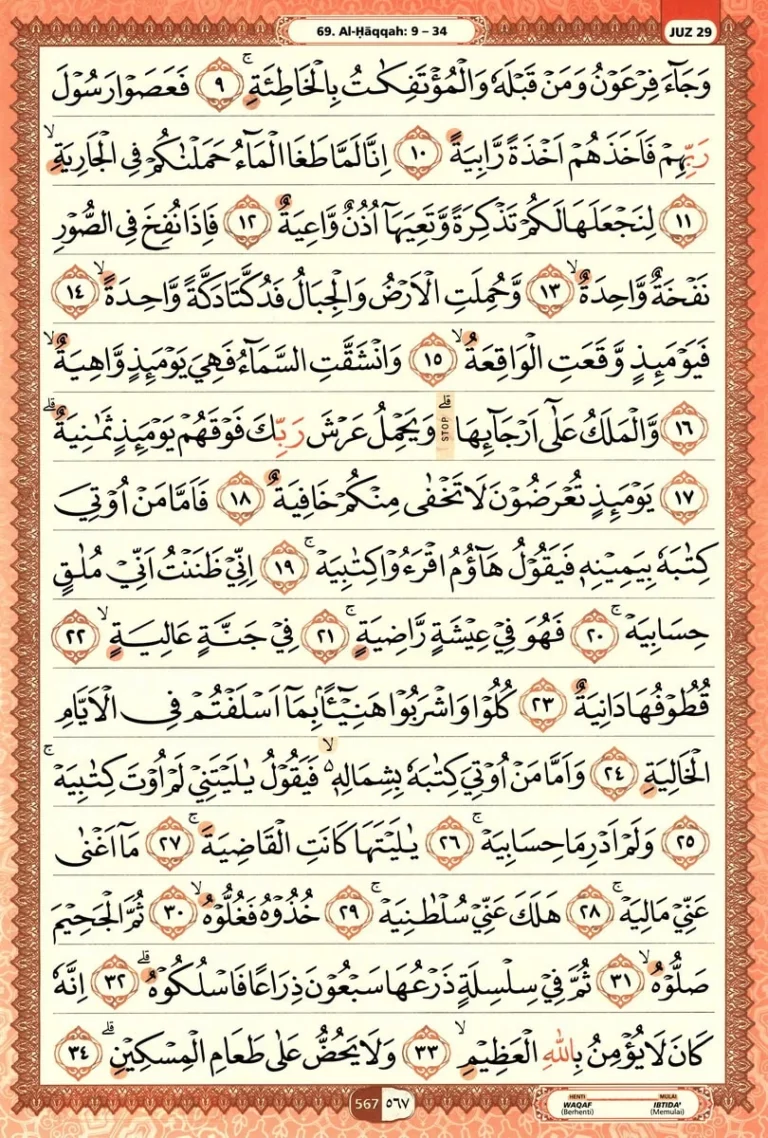 69. Al-Ḥāqqah: 9 – 34
JUZ 29
وَجَاۤءَ فِرْعَوْنُ وَمَنْ قَبْلَهٗ وَالْمُؤْتَفِكٰتُ بِالْخَاطِئَةِۚ ٩ فَعَصَوْا رَسُوْلَ
رَبِّهِمْ فَاَخَذَهُمْ اَخْذَةً رَّابِيَةً ١٠ اِنَّا لَمَّا طَغَا الْمَاۤءُ حَمَلْنٰكُمْ فِى الْجَارِيَةِۙ
١١ لِنَجْعَلَهَا لَكُمْ تَذْكِرَةً وَّتَعِيَهَآ اُذُنٌ وَّاعِيَةٌ ١٢ فَاِذَا نُفِخَ فِى الصُّوْرِ
نَفْخَةٌ وَّاحِدَةٌۙ ١٣ وَّحُمِلَتِ الْاَرْضُ وَالْجِبَالُ فَدُكَّتَا دَكَّةً وَّاحِدَةًۙ ١٤
فَيَوْمَىِٕذٍ وَّقَعَتِ الْوَاقِعَةُۙ ١٥ وَانْشَقَّتِ السَّمَاۤءُ فَهِيَ يَوْمَىِٕذٍ وَّاهِيَةٌۙ
١٦ وَّالْمَلَكُ عَلٰٓى اَرْجَاۤىِٕهَاۗ STOP وَيَحْمِلُ عَرْشَ رَبِّكَ فَوْقَهُمْ يَوْمَىِٕذٍ ثَمٰنِيَةٌۗ
١٧ يَوْمَىِٕذٍ تُعْرَضُوْنَ لَا تَخْفٰى مِنْكُمْ خَافِيَةٌ ١٨ فَاَمَّا مَنْ اُوْتِيَ
كِتٰبَهٗ بِيَمِيْنِهٖ فَيَقُوْلُ هَاۤؤُمُ اقْرَءُوْا كِتٰبِيَهْۚ ١٩ اِنِّيْ ظَنَنْتُ اَنِّيْ مُلٰقٍ
حِسَابِيَهْۚ ٢٠ فَهُوَ فِيْ عِيْشَةٍ رَّاضِيَةٍۚ ٢١ فِيْ جَنَّةٍ عَالِيَةٍۙ ٢٢
قُطُوْفُهَا دَانِيَةٌ ٢٣ كُلُوْا وَاشْرَبُوْا هَنِيْۤـًٔا ۢبِمَآ اَسْلَفْتُمْ فِى الْاَيَّامِ
الْخَالِيَةِ ٢٤ وَاَمَّا مَنْ اُوْتِيَ كِتٰبَهٗ بِشِمَالِهٖ ەۙ فَيَقُوْلُ يٰلَيْتَنِيْ لَمْ اُوْتَ كِتٰبِيَهْۚ
٢٥ وَلَمْ اَدْرِ مَا حِسَابِيَهْۚ ٢٦ يٰلَيْتَهَا كَانَتِ الْقَاضِيَةَۚ ٢٧ مَآ اَغْنٰى
عَنِّيْ مَالِيَهْۚ ٢٨ هَلَكَ عَنِّيْ سُلْطٰنِيَهْۚ ٢٩ خُذُوْهُ فَغُلُّوْهُۙ ٣٠ ثُمَّ الْجَحِيْمَ
صَلُّوْهُۙ ٣١ ثُمَّ فِيْ سِلْسِلَةٍ ذَرْعُهَا سَبْعُوْنَ ذِرَاعًا فَاسْلُكُوْهُۗ ٣٢ اِنَّهٗ
كَانَ لَا يُؤْمِنُ بِاللّٰهِ الْعَظِيْمِۙ ٣٣ وَلَا يَحُضُّ عَلٰى طَعَامِ الْمِسْكِيْنِۗ ٣٤
567 ٥٦٧
HENTI
WAQAF
(Berhenti)
MULAI
IBTIDA'
(Memulai)